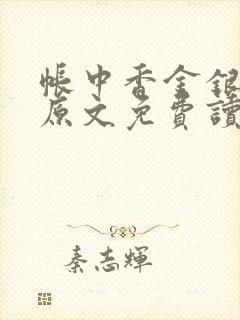 帳中香金銀
原文免費讀
秦志輝